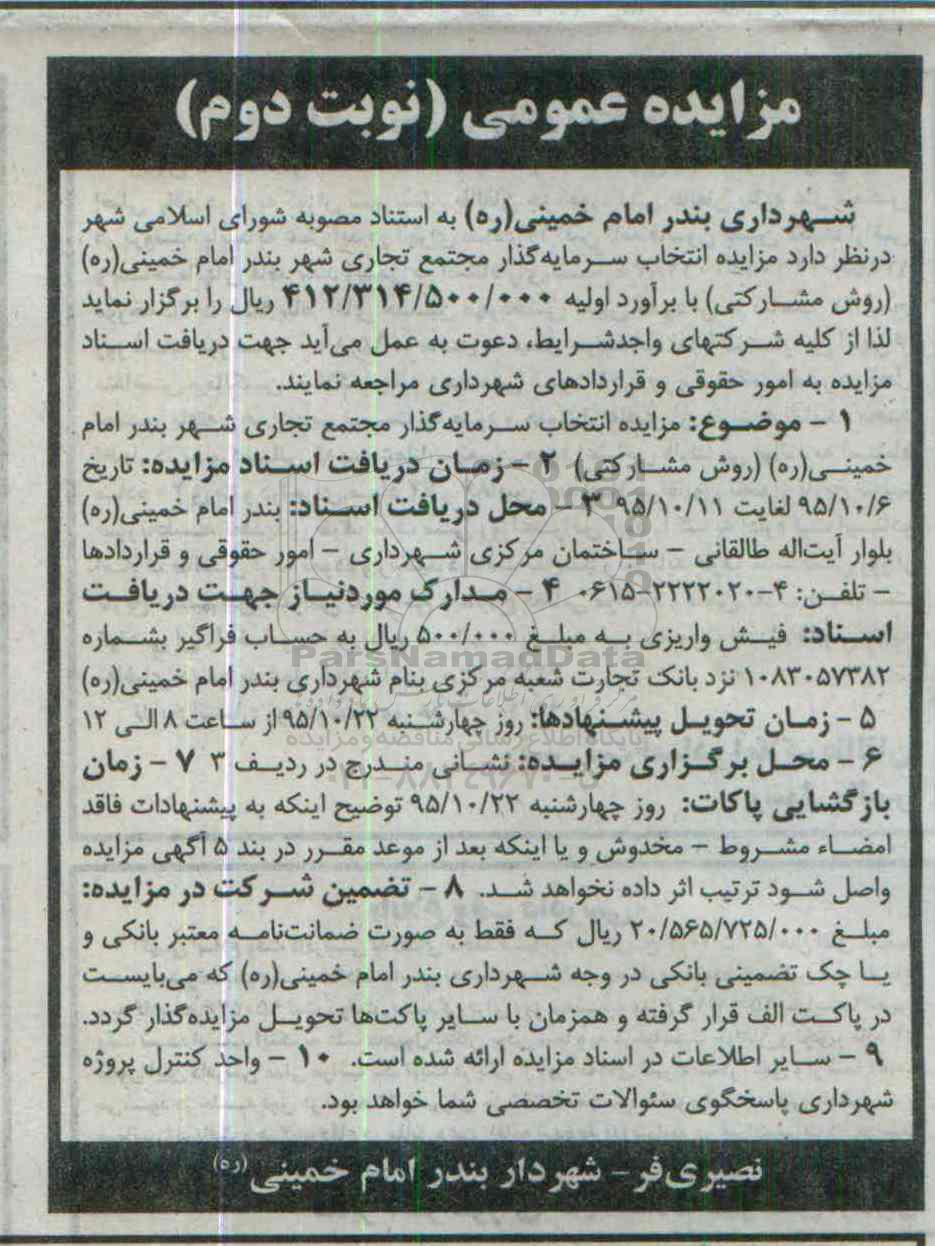 مزایده عمومی (نوبت دوم)
شهرداری بندر امام خمینی(ره) به استناد مصوبه شورای اسلامی شهر
درنظر دارد مزایده انتخاب سرمایه‌گذار مجتمع تجاری شهر بندر امام خمینی(ره)
(روش مشارکتی) با برآورد اولیه ۴۱۲/۳۱۴/۵۰۰/۰۰۰ ریال را برگزار نماید
لذا از کلیه شرکتهای واجدشرایط، دعوت به عمل می‌آید جهت دریافت اسناد
مزایده به امور حقوقی و قراردادهای شهرداری مراجعه نمایند.
۱ - موضوع: مزایده انتخاب سرمایه‌گذار مجتمع تجاری شهر بندر امام
خمینی(ره) (روش مشارکتی) ۲ - زمان دریافت اسناد مزایده: تاریخ
۹۵/۱۰/۶ لغایت ۹۵/۱۰/۱۱ ۳ - محل دریافت اسناد: بندر امام خمینی(ره)
بلوار آیت‌اله طالقانی - ساختمان مرکزی شهرداری - امور حقوقی و قراردادها
- تلفن: ۴-۰۶۱۵-۲۲۲۲۰۲۰ ۴ - مدارک موردنیاز جهت دریافت
اسناد: فیش واریزی به مبلغ ۵۰۰/۰۰۰ ریال به حساب فراگیر بشماره
۱۰۸۳۰۵۷۳۸۲ نزد بانک تجارت شعبه مرکزی بنام شهرداری بندر امام خمینی(ره)
۵ - زمان تحویل پیشنهادها: روز چهارشنبه ۹۵/۱۰/۲۲ از ساعت ۸ الی ۱۲
۶ - محل برگزاری مزایده: نشانی مندرج در ردیف ۳ ۷ - زمان
بازگشایی پاکات: روز چهارشنبه ۹۵/۱۰/۲۲ توضیح اینکه به پیشنهادات فاقد
امضاء مشروط - مخدوش و یا اینکه بعد از موعد مقرر در بند ۵ آگهی مزایده
واصل شود ترتیب اثر داده نخواهد شد. ۸ - تضمین شرکت در مزایده:
مبلغ ۲۰/۵۶۵/۷۲۵/۰۰۰ ریال که فقط به صورت ضمانت‌نامه معتبر بانکی و
یا چک تضمینی بانکی در وجه شهرداری بندر امام خمینی(ره) که می‌بایست
در پاکت الف قرار گرفته و همزمان با سایر پاکت‌ها تحویل مزایده‌گذار گردد.
۹ - سایر اطلاعات در اسناد مزایده ارائه شده است. ۱۰ - واحد کنترل پروژه
شهرداری پاسخگوی سئوالات تخصصی شما خواهد بود.
نصیری‌فر - شهردار بندر امام خمینی (ره)
ParsNamadData
پایگاه اطلاع رسانی مناقصه و مزایده